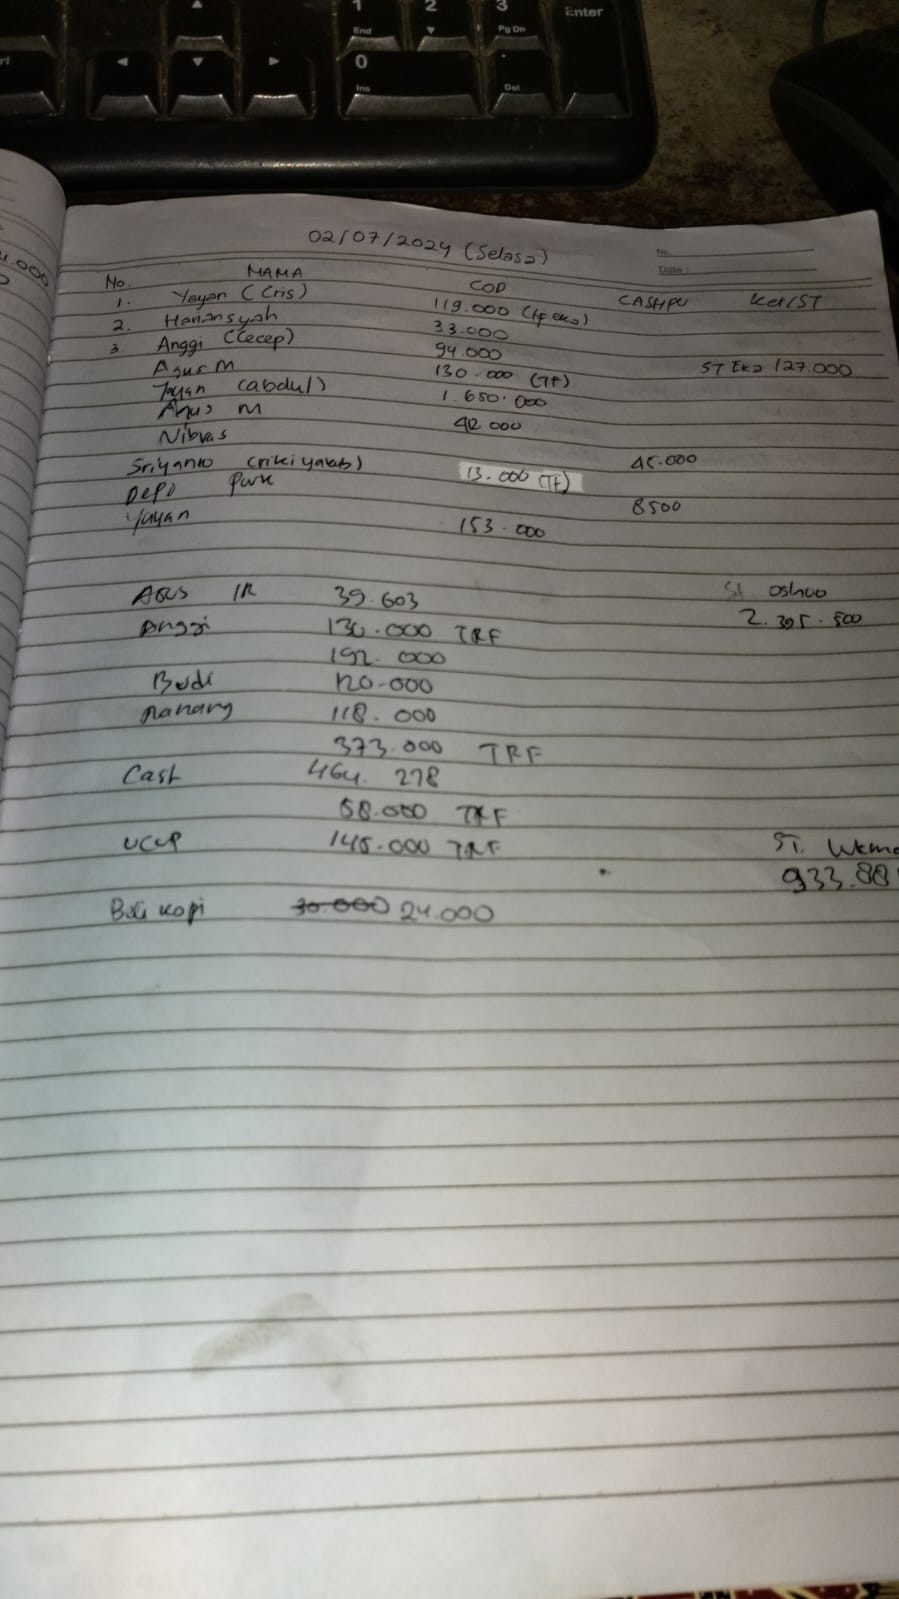 1
End
2
3
Pg Dn
Enter
0
Ins
Del
.000
02/07/2024 (Selasa)
No.
Date:
No. NAMA COD CASHPU Ket/ST
1. Yayan (Cris) 119.000 (tf eko)
2. Hanansyah 33.000
3 Anggi (Cecep) 94.000 ST Eko 127.000
Agus M 130.000 (TF)
Yayan (abdul) 1.650.000
Agus M 42.000
Nibras 45.000
Sriyanto (riki yakub) 13.000 (TF)
Depo Pwk 8500
Yayan 153.000
Agus IR 39.603 St
Anggi 130.000 TRF 2.395.500
192.000
Budi 120.000
Nanang 118.000
373.000 TRF
Cash 464.278
58.000 TRF
UCUP 145.000 TRF ST.
933.88
Beli kopi 30.000 24.000